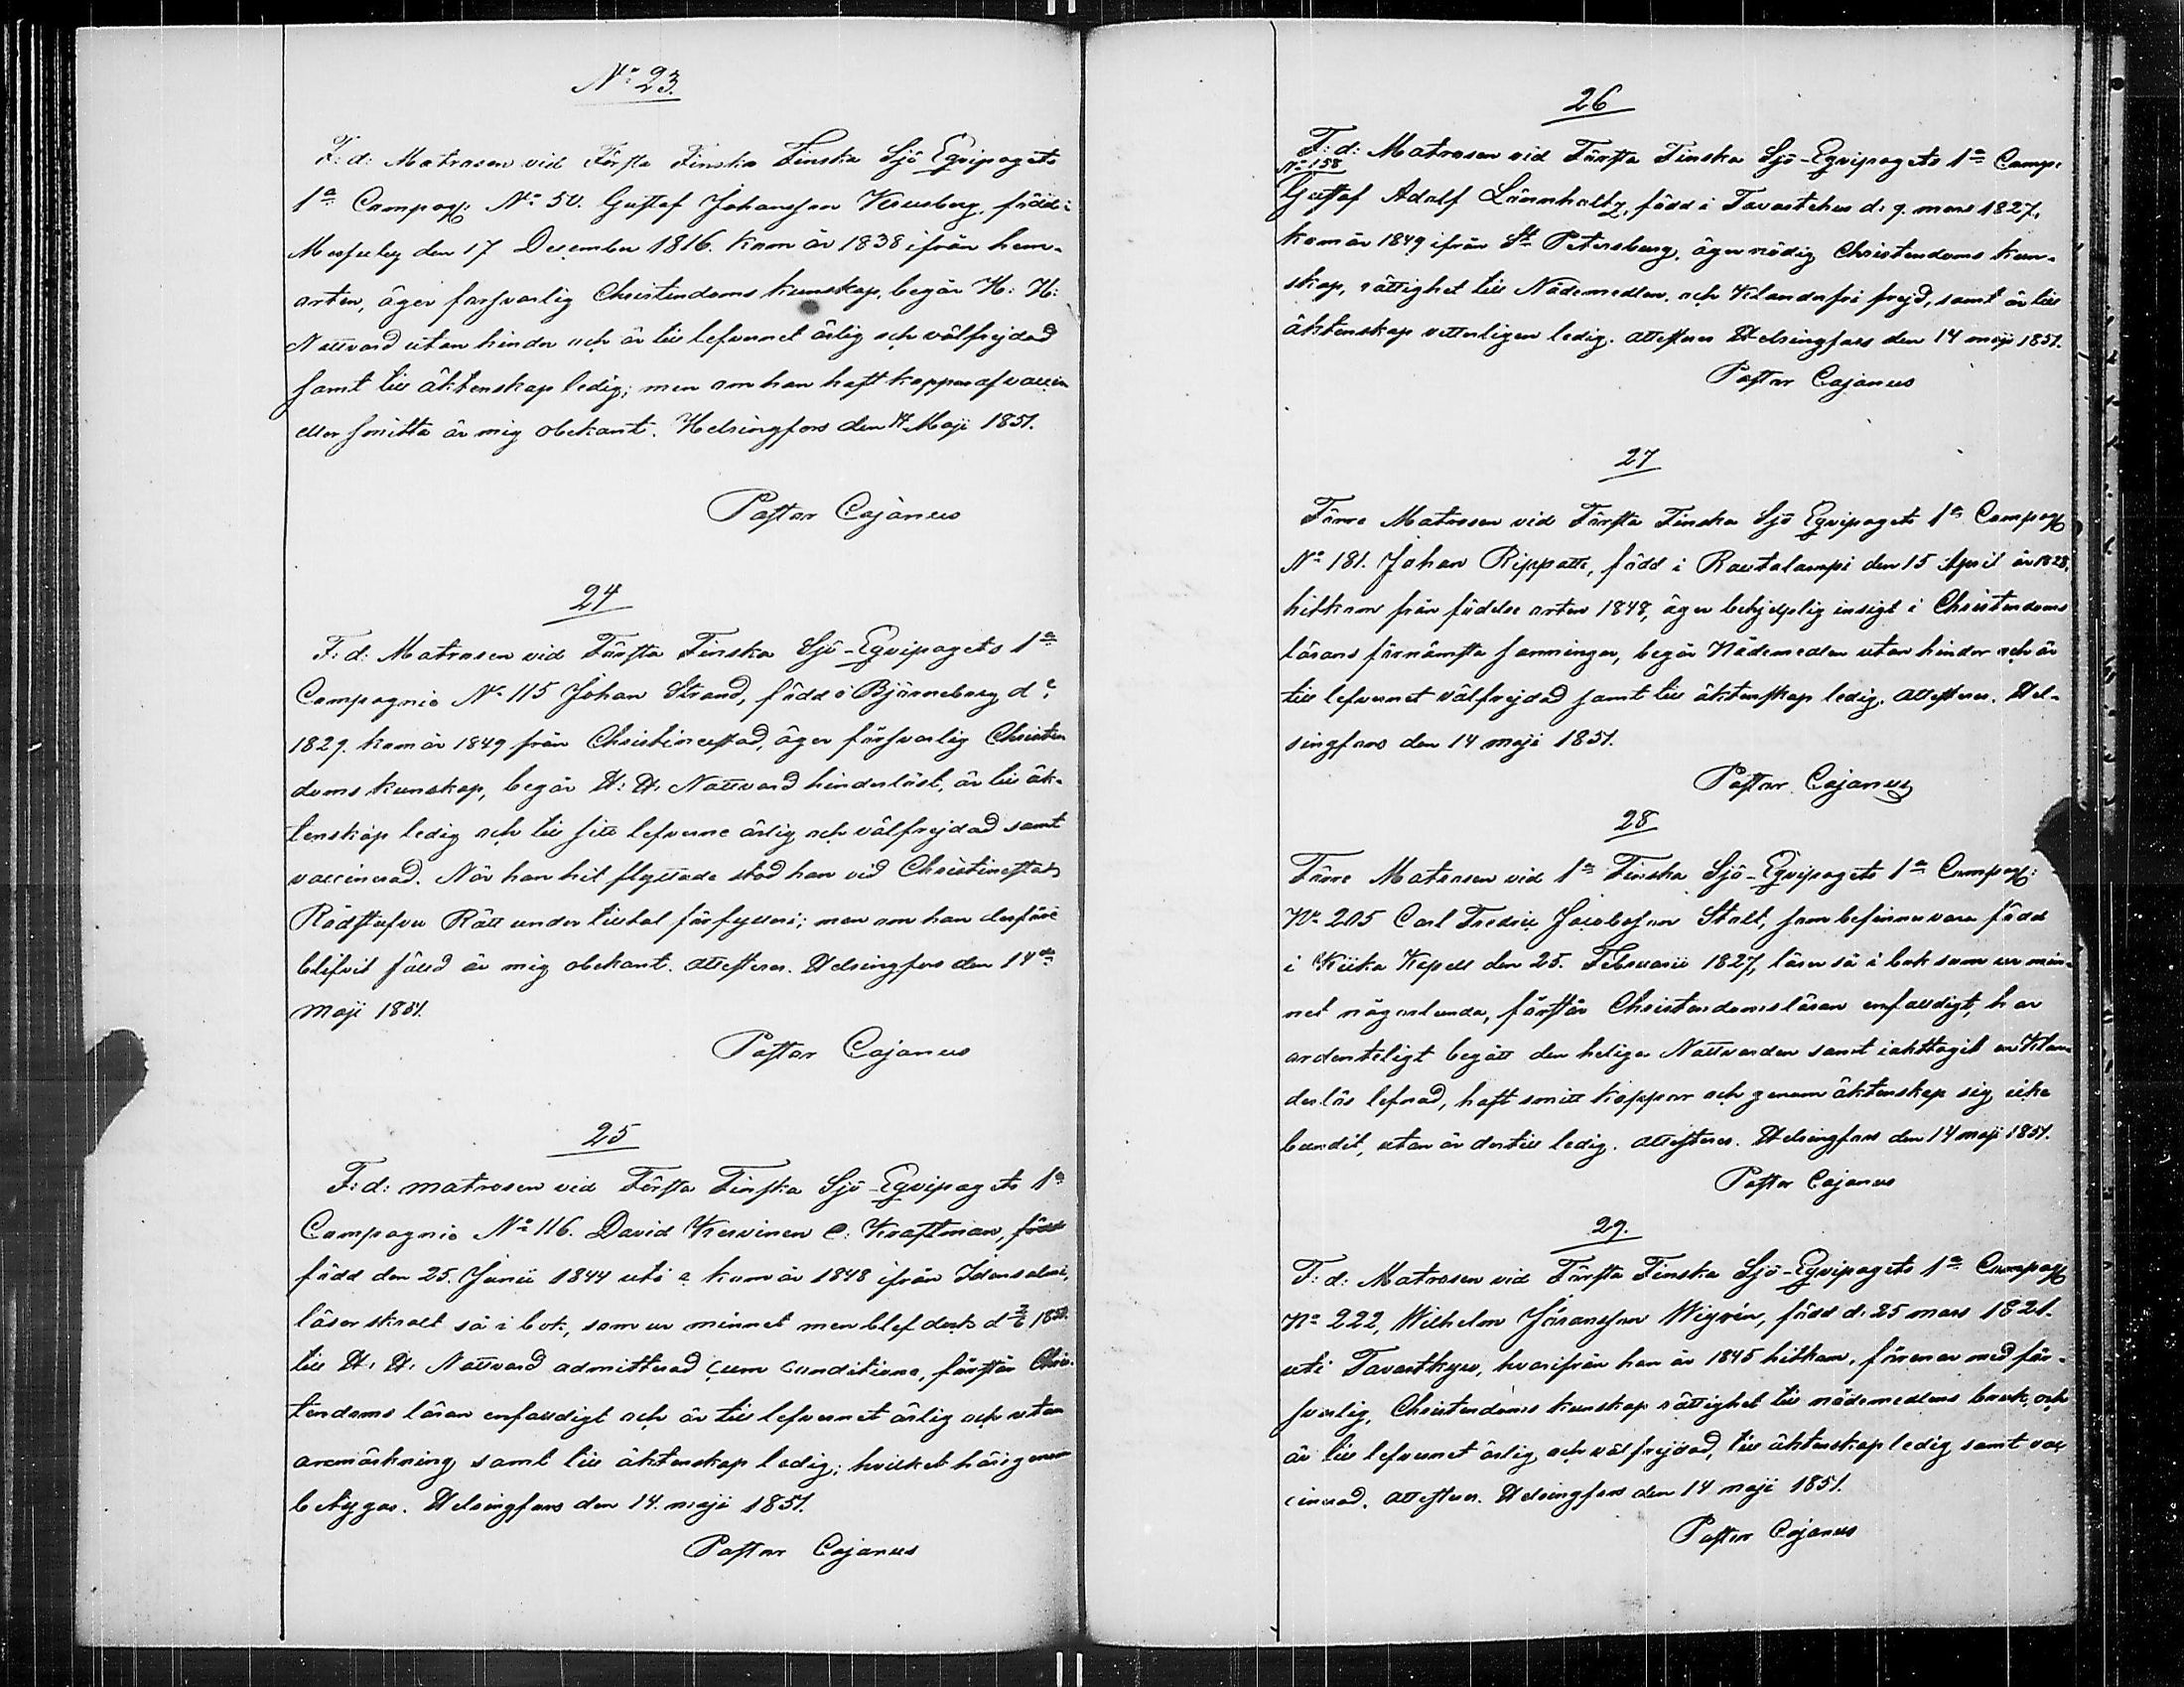 No 23.
F: d: Matrosen vid Första Finska Finska Sjö Eqvipagets
1a Compag: No 50. Gustaf Johansson Krusberg, född i
den 17 December 1816. kom år 1838 ifrån hem-
orten, äger försvarlig Christendoms kunskap, begår H: H:
Nattvard utan hinder och är till lefvernet ärlig och välfrejdad
samt till äktenskap ledig; men om han haft koppor af vaccin
eller smitta är mig obekant. Helsingfors den 14 Maji 1851.
Pastor Cajanus
24
F: d: Matrosen vid Första Finska Sjö-Eqvipagets 1a
Compagnie No 115 Johan Strand, född i Björneborg d:
1829. kom år 1849 från Christinestad, äger försvarlig Christen
doms kunskap, begår H: H. Nattvard hinderlöst, är till äk-
tenskap ledig och till sitt lefverne ärlig och välfrejdad samt
vaccinerad. När han hit flyttade stod han vid Christinestads
Rådstufvu Rätt under tilltal för fylleri; men om han derföre
blifvit fälld är mig obekant. Attesteras. Helsingfors den 14de
maji 1851.
Pastor Cajanus
25
F: d: matrosen vid Första Finska Sjö-Eqvipagets 1a
Compagnie No 116. David Kervinen e: Kraftman, född
född den 25. Junii 1844 uti e kom år 1848 ifrån Idensalmi,
läser skralt så i bok, som ur minnet men blef dock d
till H. H. Nattvard admitterad cum conditione, förstår Chris-
tendoms läran enfaldigt och är till lefvernet ärlig och utan
anmärkning samt till äktenskap ledig; hvilket härigenom
betygas. Helsingfors den 14. maji 1851.
Pastor Cajanus
26
F: d: Matrosen vid Första Finska Sjö-Eqvipagets 1a Comp:
No 158
Gustaf Adolf Lönnholtz, född i Tavastehus d: 9. mars 1827,
kom år 1849 ifrån St Petersburg, äger nödig Christendoms kun-
skap, rättighet till Nådemedlen, och klanderfri frejd, samt är till
äktenskap vetterligen ledig. Attesteras Helsingfors den 14 maji 1851.
Pastor Cajanus
27
Förre Matrosen vid Första Finska Sjö Eqvipagets 1a Compag
No 181. Johan Rippatti, född i Rautalampi den 15 April år 1828,
hitkom från födelse orten 1848, äger behjelplig insigt i Christendoms
lärans förnämsta sanningar, begår Nådemedlen utan hinder och är
till lefvernet välfrejdad samt till äktenskap ledig. Attesteras. Hel-
singfors den 14 maji 1851.
Pastor Cajanus
28
Förre Matrosen vid 1a Finska Sjö-Eqvipagets 1a Compag:
No 205 Carl Fredric Jacobsson Stolt, som befinnes vara född
i Kiika Kapell den 25. Februarii 1827, läser så i bok som ur min-
net någorlunda, förstår Christendomsläran enfaldigt, har
ordenteligt begått den heliga Nattvarden samt iakttagit en klan-
derlös lefnad, haft smitt koppor och genom äktenskap sig icke
bundit, utan är dertill ledig. Attesteras. Helsingfors den 14 maji 1851.
Pastor Cajanus
29.
F: d: Matrosen vid Första Finska Sjö-Eqvipagets 1a Compag
No 222, Wilhelm Göransson Wigrén, född d: 25 mars 1821.
uti Tavastkyro, hvarifrån han år 1845 hitkom, förenar med för-
svarlig, Christendoms kunskap rättighet till nådemedlens bruk, och
är till lefvernet ärlig och välfrejdad, till äktenskap ledig samt vac
cinerad. Attesteras. Helsingfors den 14 maji 1851.
Pastor Cajanus